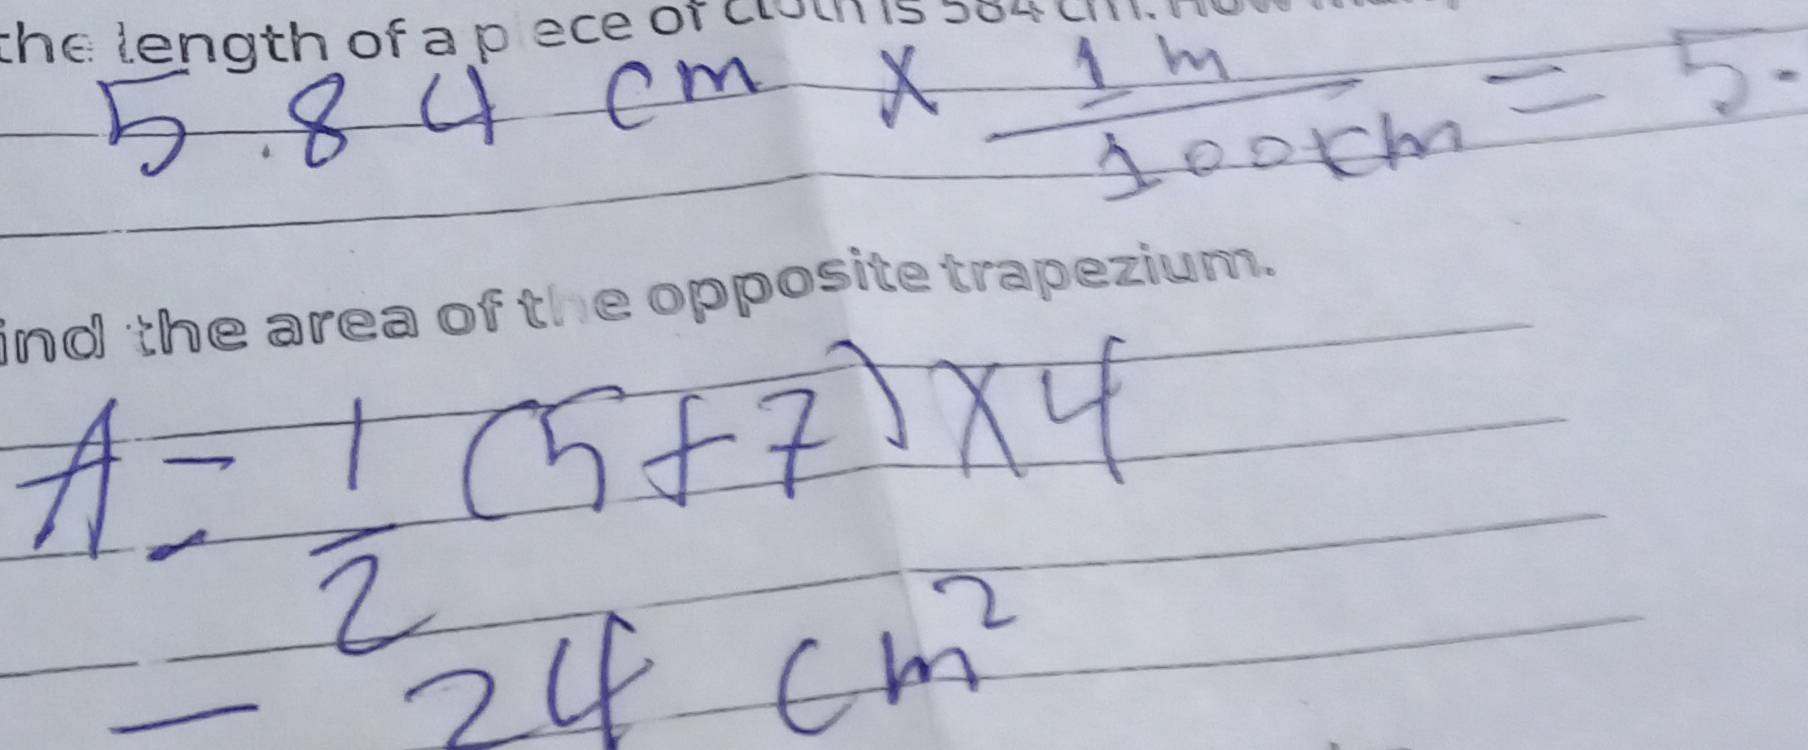 the length of a piece of cloth is 584 cm. How
5.84 cm × 1 m / 100 cm = 5.
ind the area of the opposite trapezium.
A = 1/2 (5+7) × 4
= 24 cm²